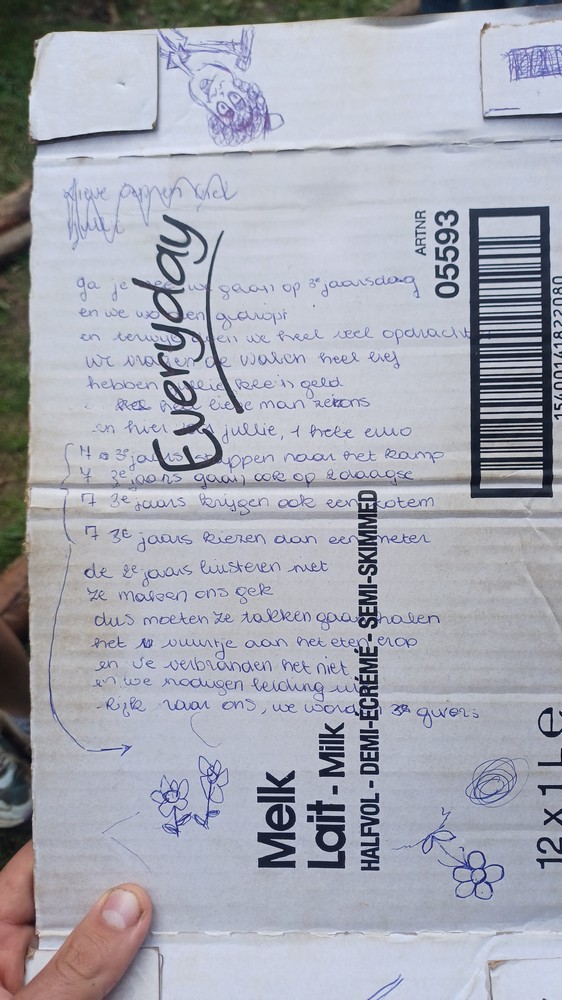 ga je mee we gaan op 3e jaarsdag
en we worden gedropt
en terwijl doen we heel veel opdrachten
we vragen de walen heel lief
hebben jullie klein geld
lieve man
en hier jullie, 1 hele euro
7 3e jaars stappen naar het kamp
7 3e jaars gaan ook op 2daagse
7 3e jaars krijgen ook een totem
7 3e jaars kiezen dan een meter
de 2e jaars luisteren niet
ze maken ons gek
dus moeten ze takken gaan halen
het vuurtje aan het eten erop
en we verbranden het niet
en we nodigen leiding uit
kijk naar ons, we worden givers
Everyday
Melk
Lait - Milk
HALFVOL - DEMI-ÉCRÉMÉ - SEMI-SKIMMED
ARTNR
05593
12 x 1 L e